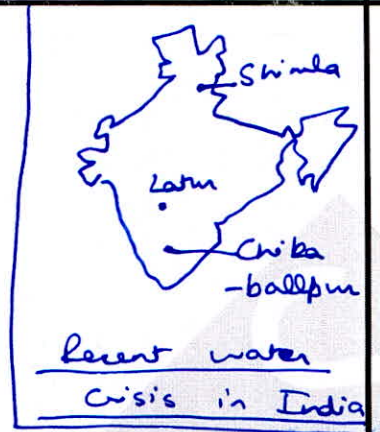 Shimla
Latur
Chika
-ballpur
Recent water
Crisis in India